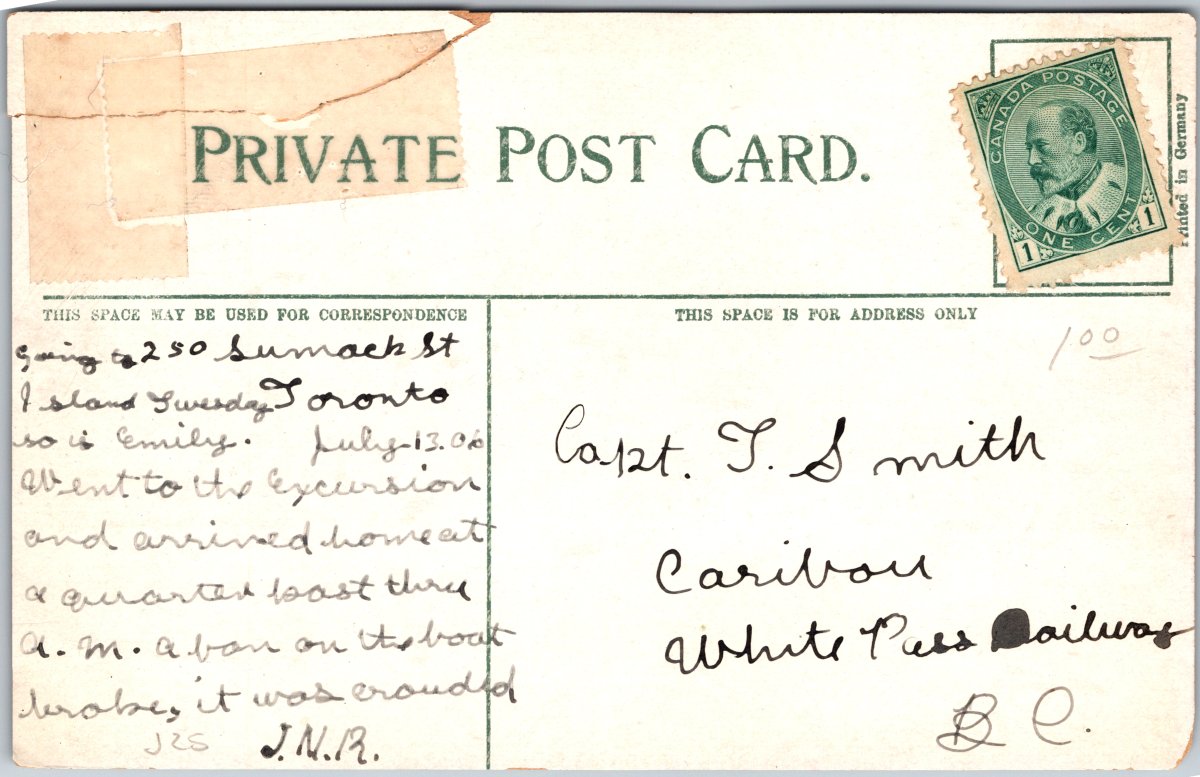 PRIVATE POST CARD.
CANADA POSTAGE
ONE CENT
1 1
Printed in Germany
THIS SPACE MAY BE USED FOR CORRESPONDENCE
THIS SPACE IS FOR ADDRESS ONLY
1 00
Going to 250 Sumack St
Island Tuesday Toronto
so is Emily. July 13. 06
Went to the Excursion
and arrived home at
a quarter past thre
a. m. a bar on the boat
broke, it was crouded
J.N.R.
J25
Capt. T. Smith
Caribou
White Pass Railway
B C.